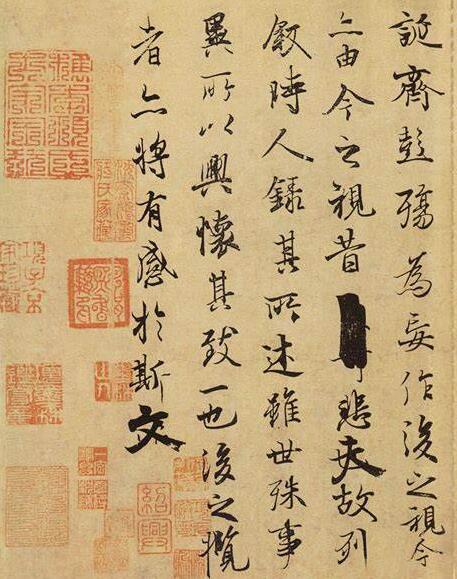 誕齊彭殤為妄作後之視今
亦由今之視昔悲夫故列
敘時人錄其所述雖世殊事
異所以興懷其致一也後之攬
者亦將有感於斯文
紹興